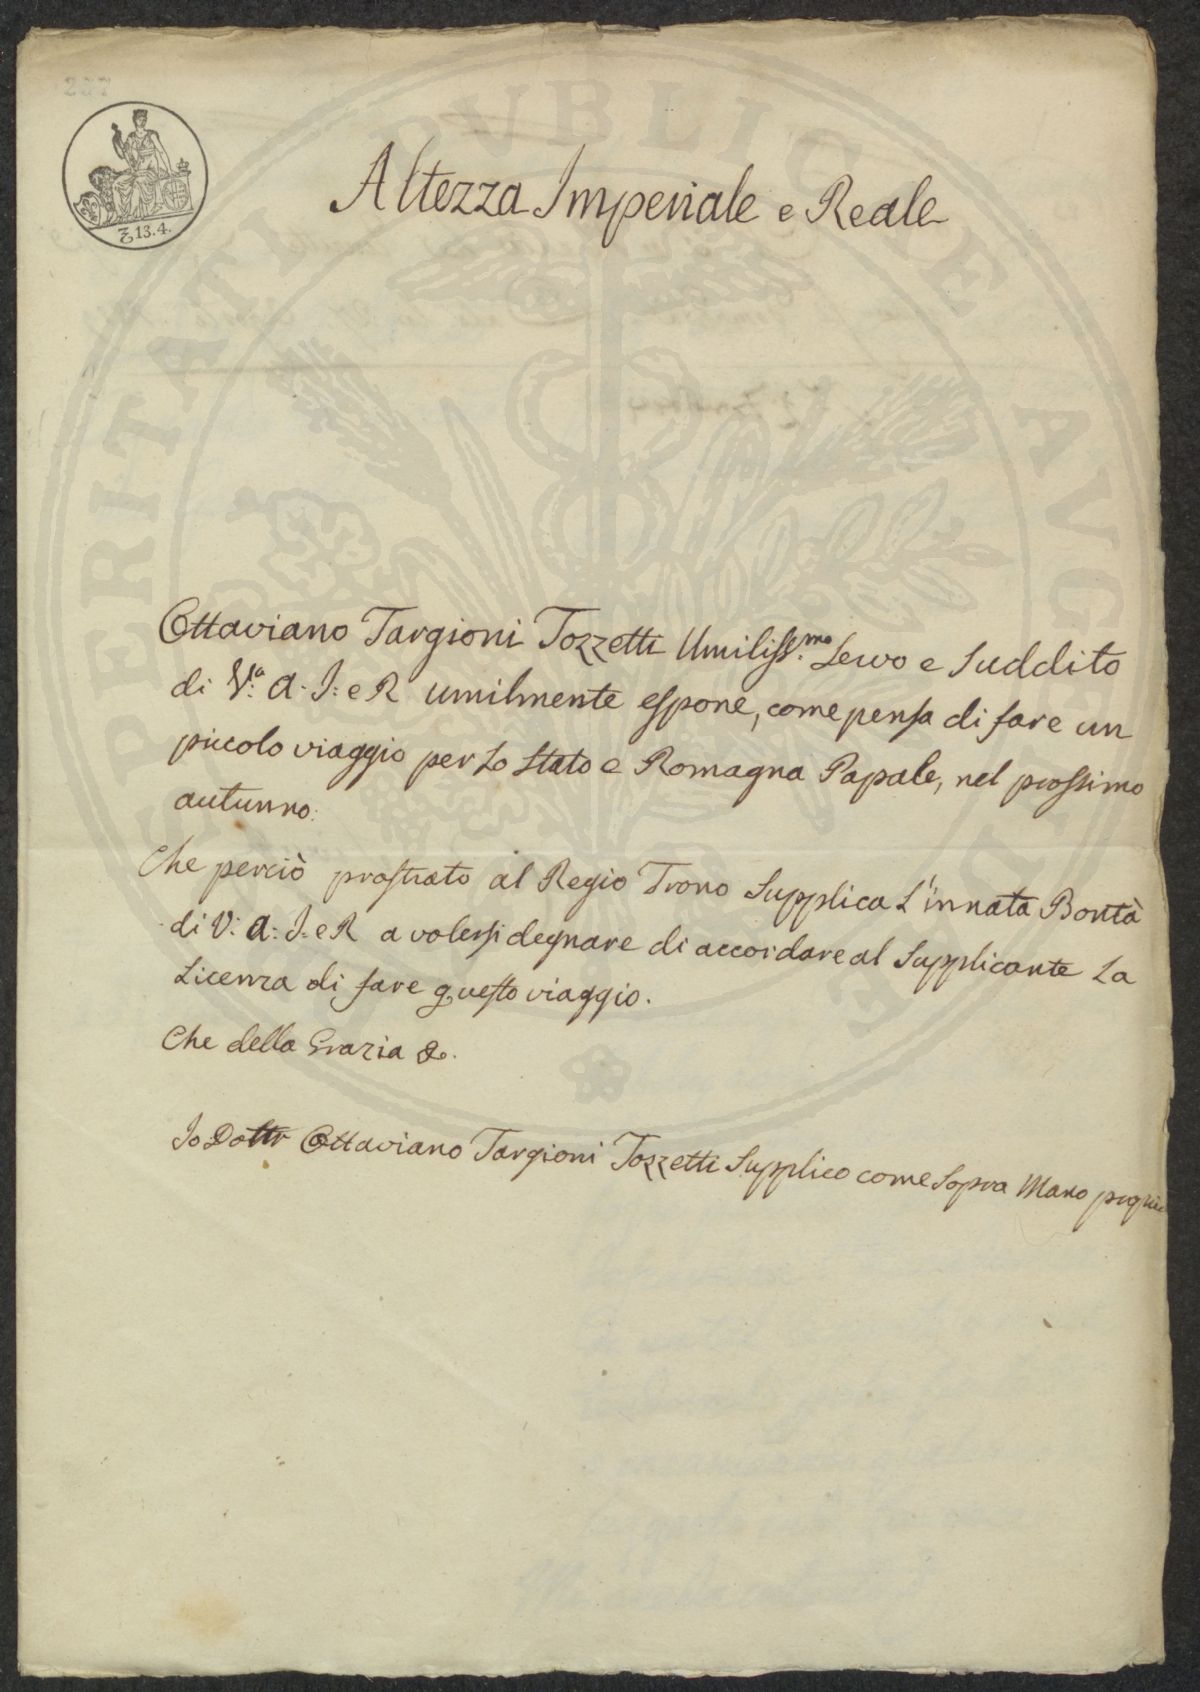 257
₤ 13.4.
Altezza Imperiale e Reale
Ottaviano Targioni Tozzetti Umiliss.mo Servo e Suddito
di V.a A. I: e R umilmente espone, come pensa di fare un
piccolo viaggio per Lo Stato e Romagna Papale, nel prossimo
autunno.
Che perciò prostrato al Regio Trono Supplica L'innata Bontà
di V: A: I: e R a volersi degnare di accordare al Supplicante La
Licenza di fare questo viaggio.
Che della Grazia &.
Io Dottr Ottaviano Targioni Tozzetti Supplico come Sopra Mano propria
VERITATI PVBLICAE